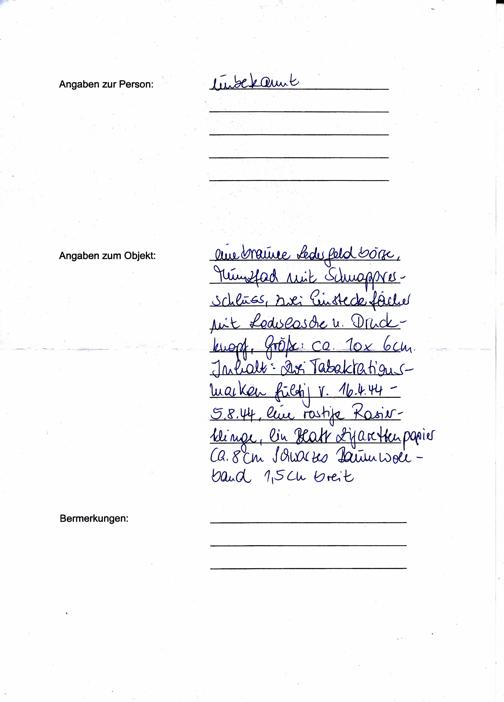 Angaben zur Person:
unbekannt
Angaben zum Objekt:
eine braune Ledergeldbörse,
Münzfach mit Schnappver-
schluss, zwei Einsteckfächer
mit Lederlasche u. Druck-
knopf, Größe: ca. 10x 6cm.
Inhalt: zwei Tabakrations-
marken gültig v. 16.4.44 -
5.8.44, eine rostige Rasier-
klinge, ein Blatt Zigarettenpapier
ca. 8cm schwarzes Baumwoll-
band 1,5cm breit
Bermerkungen: